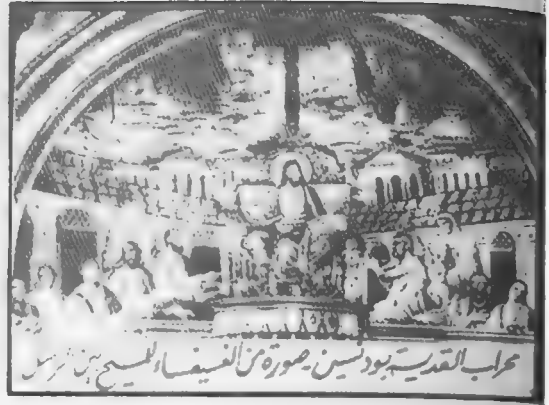 محراب القديسة بودنسين - صورة من الفسيفساء للمسيح بين الرسل